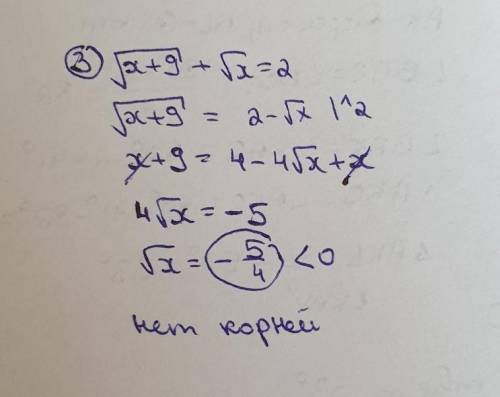 3) √(x+9) + √x = 2
√(x+9) = 2 - √x |^2
x + 9 = 4 - 4√x + x
4√x = -5
√x = -5/4 < 0
нет корней